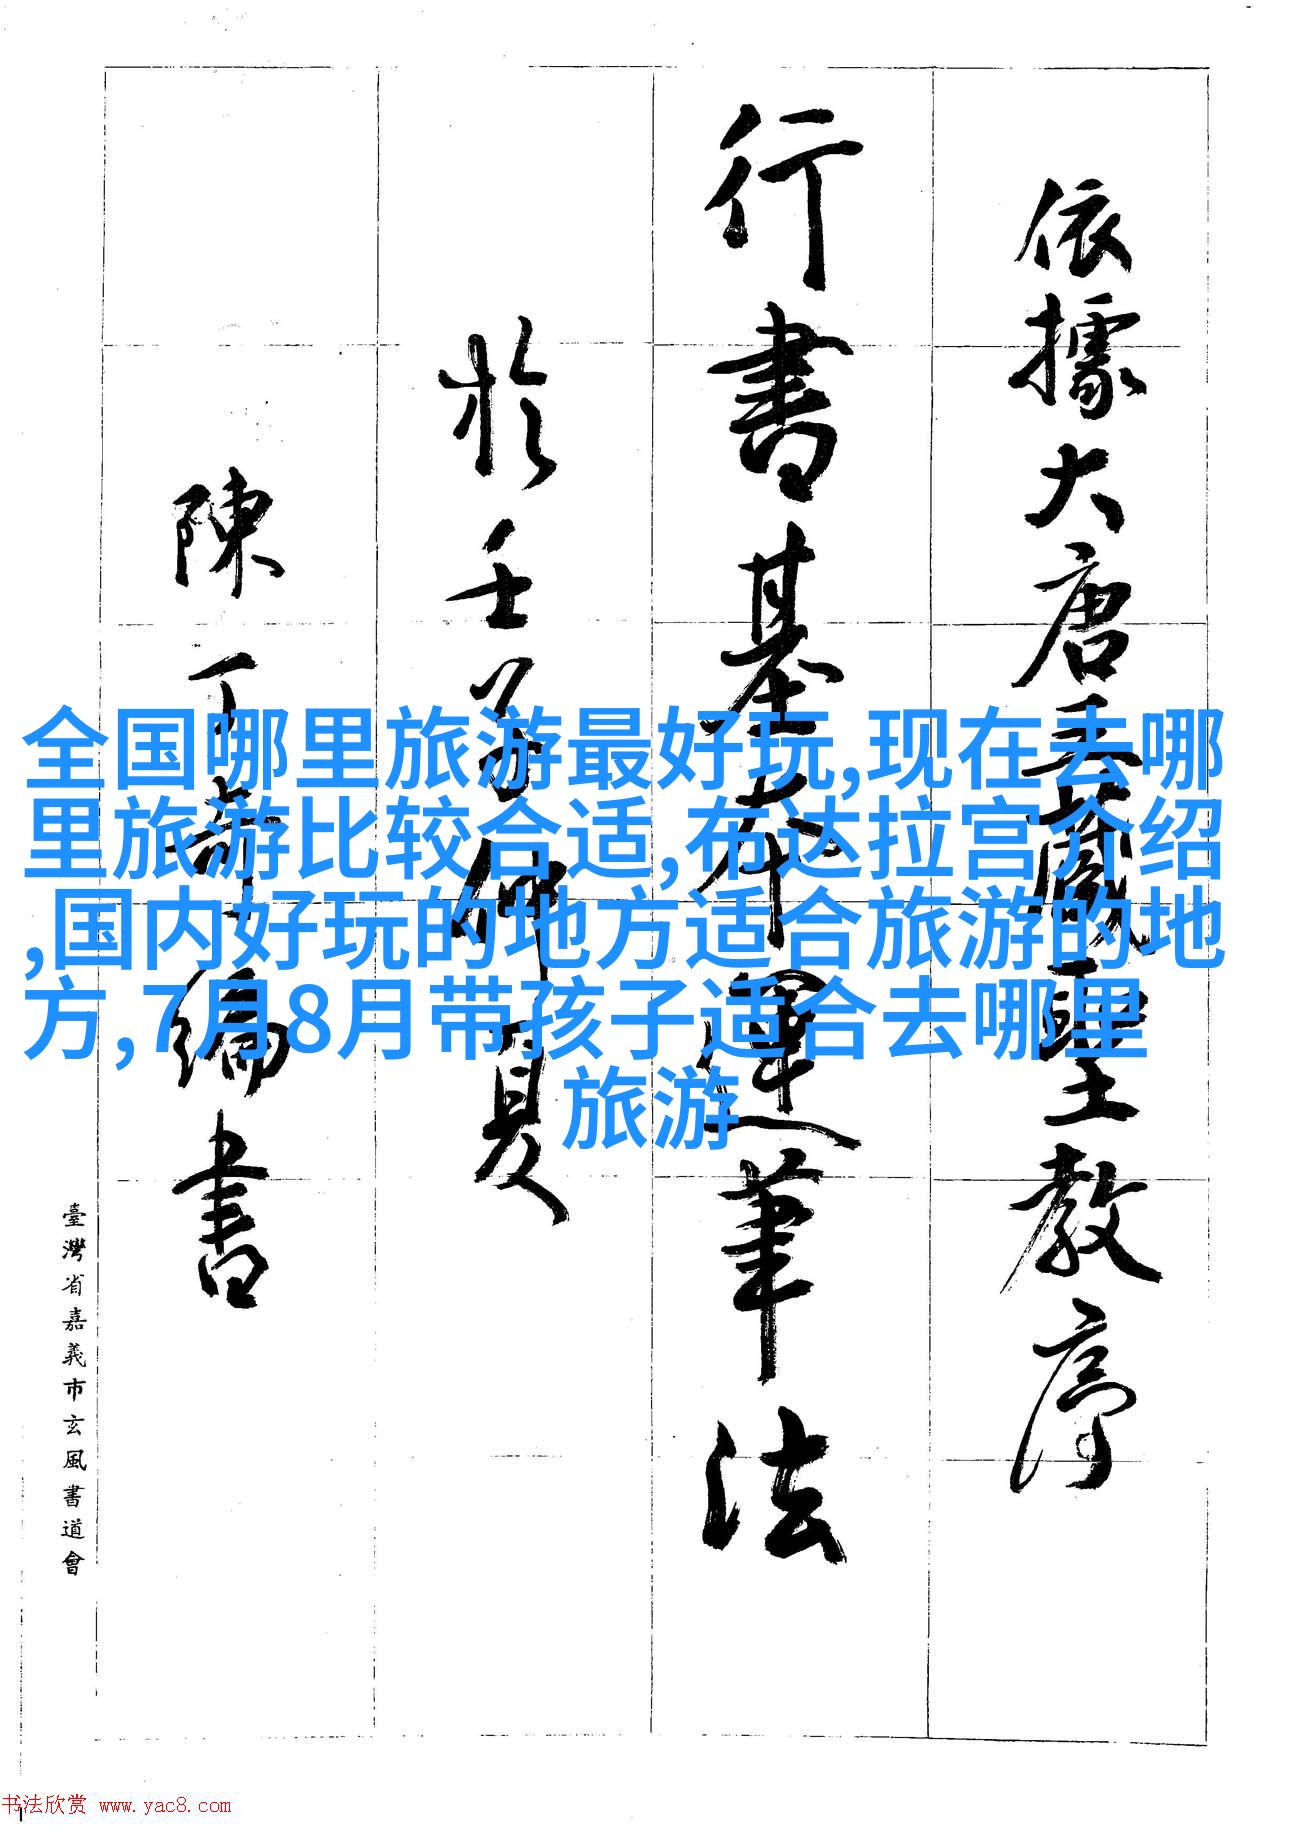 依據大唐三藏聖教序
行書基本運筆法
於壬子仲夏
陳丁奇編書
臺灣省嘉義市玄風書道會
全国哪里旅游最好玩,现在去哪
里旅游比较合适,布达拉宫介绍
,国内好玩的地方适合旅游的地
方,7月8月带孩子适合去哪里
旅游
书法欣赏 www.yac8.com